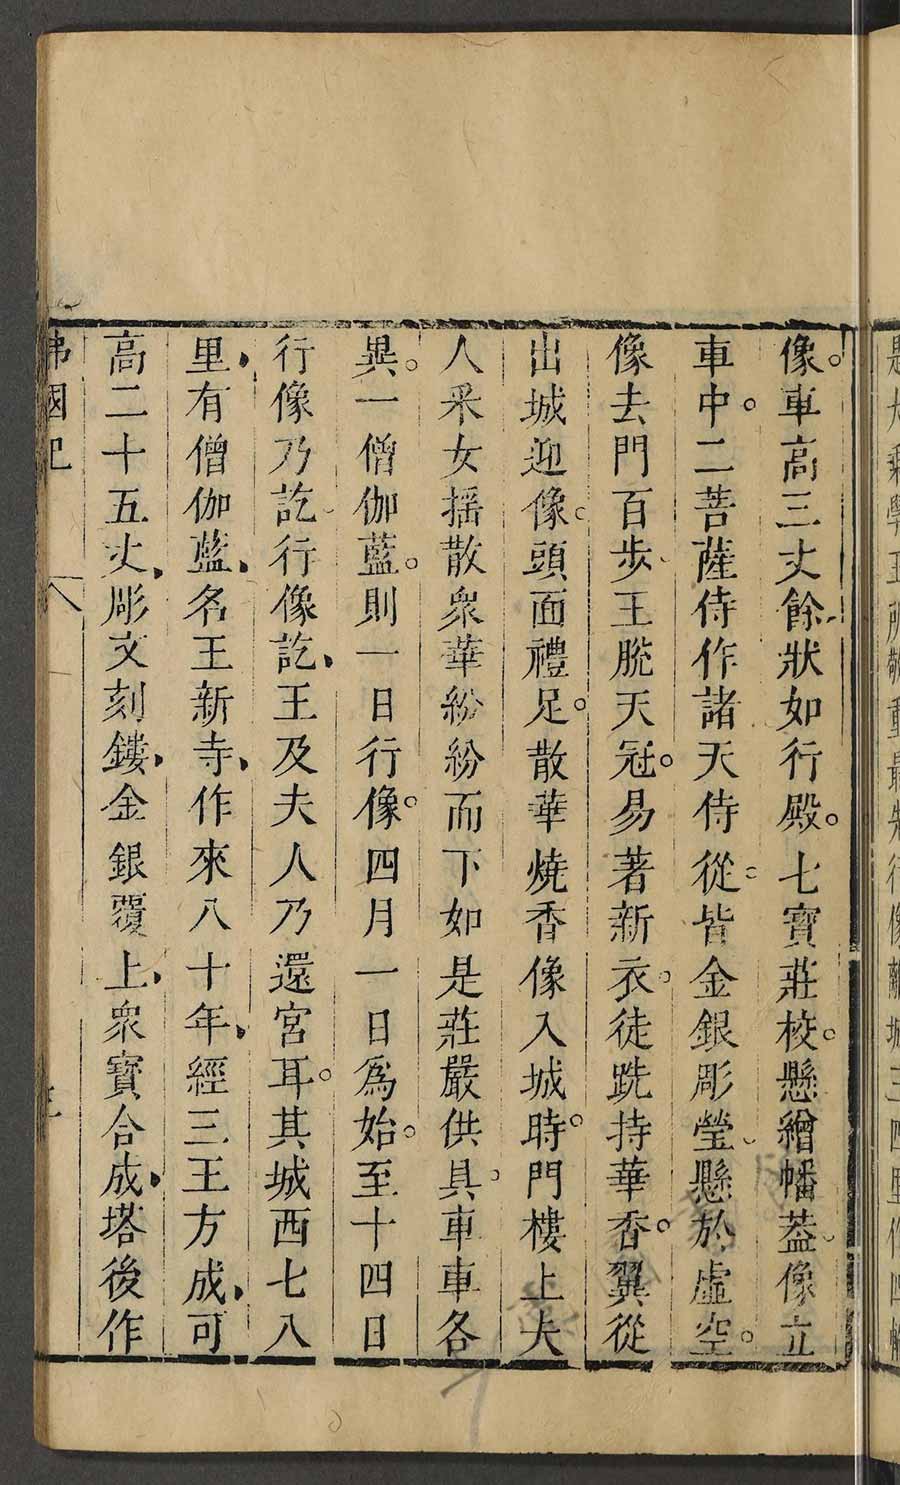 像車高三丈餘狀如行殿七寶莊校懸繒幡蓋像立
車中二菩薩侍作諸天侍從皆金銀彫瑩懸於虛空
像去門百步王脫天冠易著新衣徒跣持華香翼從
出城迎像頭面禮足散華燒香像入城時門樓上夫
人采女揺散衆華紛紛而下如是莊嚴供具車車各
異一僧伽藍則一日行像四月一日爲始至十四日
行像乃訖行像訖王及夫人乃還宮耳其城西七八
里有僧伽藍名王新寺作來八十年經三王方成可
高二十五丈彫文刻鏤金銀覆上衆寶合成塔後作
佛國記